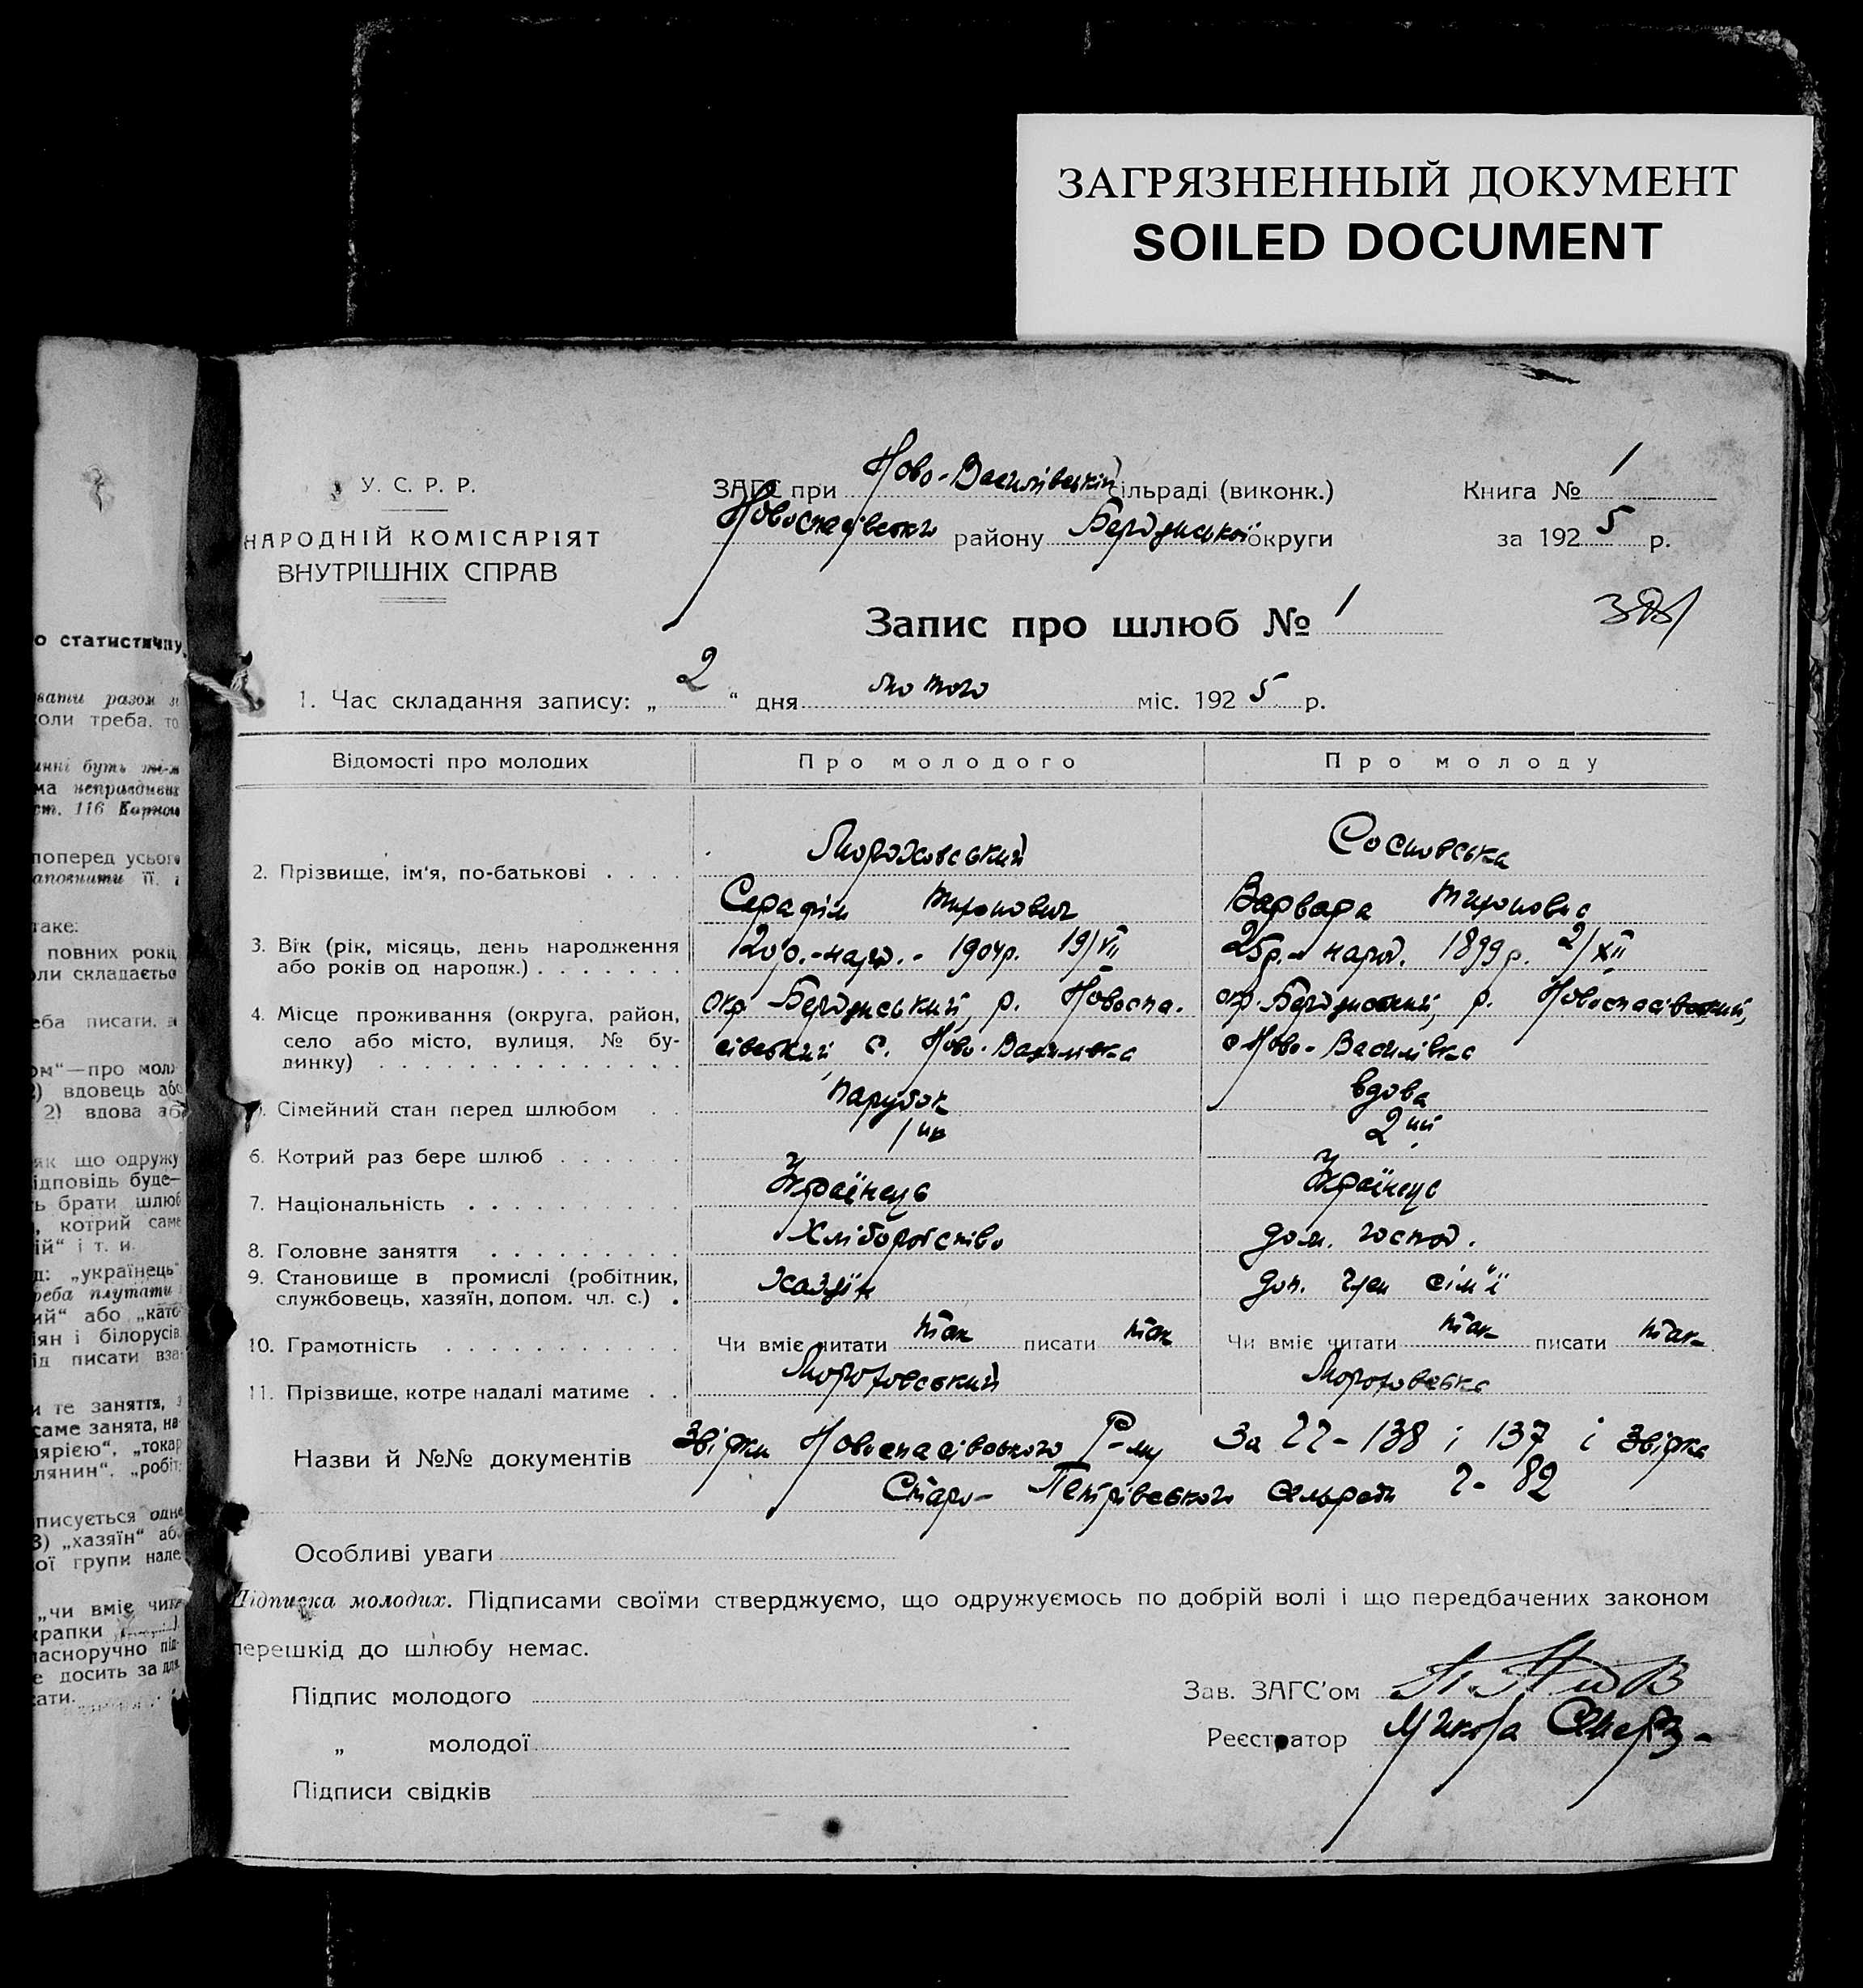 ЗАГРЯЗНЕННЫЙ ДОКУМЕНТ
SOILED DOCUMENT
о статистичну
вати разом з
коли треба, то
инні буть
ма неправдивих
ст. 116
поперед усього
аповнити її, і
таке:
повних рокі
оли складаєтьс
еба писати, в
ом“—про мол
) вдовець або
2) вдова аб
як що одружу
ідповідь буде—
ь брати шлюб
, котрий саме
ій“ і т. и.
д: „українець“
реба плутати
ий“ або „като
іян і білорусів
ід писати вза
и те заняття, з
саме занята, на
лярією“, „токар
лянин“, „робіт
писується одне
3) „хазяїн“ аб
ої групи нале
„чи вміє чита
крапки
ласноручно під
е досить за для
ати.
У. С. Р. Р.
НАРОДНІЙ КОМІСАРІЯТ
ВНУТРІШНІХ СПРАВ
ЗАГС при Ново-Василівській сільраді (виконк.)
Новоспасівського району Бердянської округи
Книга № 1
за 1925 р.
Запис про шлюб № 1
1. Час складання запису: „2“ дня лютого міс. 1925 р.
Відомості про молодих Про молодого Про молоду
2. Прізвище, ім'я, по-батькові . . . . Мороховський Сосновська
Серафім Тихонович Варвара Тихоновна
3. Вік (рік, місяць, день народження 20 р.-нар. - 1904р. 19/VII 25р.- народ. 1899р. 2/XII
або років од народж.) . . . . . . .
4. Місце проживання (округа, район, окр. Бердянський, р. Новоспа- окр. Бердянський, р. Новоспасівський,
село або місто, вулиця, № бу- сівський с. Ново-Василівка с. Ново-Василівка
динку) . . . . . . . . . . . . . .
5. Сімейний стан перед шлюбом . . парубок вдова
6. Котрий раз бере шлюб . . . . . . 1ий 2ий
7. Національність . . . . . . . . . . Українець Українець
8. Головне заняття . . . . . . . . . Хліборобство дом. господ.
9. Становище в промислі (робітник, хазяїн доп. член сім'ї
службовець, хазяїн, допом. чл. с.) .
10. Грамотність . . . . . . . . . . . Чи вміє читати так писати так Чи вміє читати так писати так
11. Прізвище, котре надалі матиме . . Мороховський Мороховська
Назви й №№ документів Звірки Новоспасівського за 138 і 137 і звірка
Старо-Петрівського сельради 82
Особливі уваги
Підписка молодих. Підписами своїми стверджуємо, що одружуємось по добрій волі і що передбачених законом
перешкід до шлюбу немає.
Підпис молодого
Зав. ЗАГС'ом
„ молодої
Реєстратор Микола
Підписи свідків